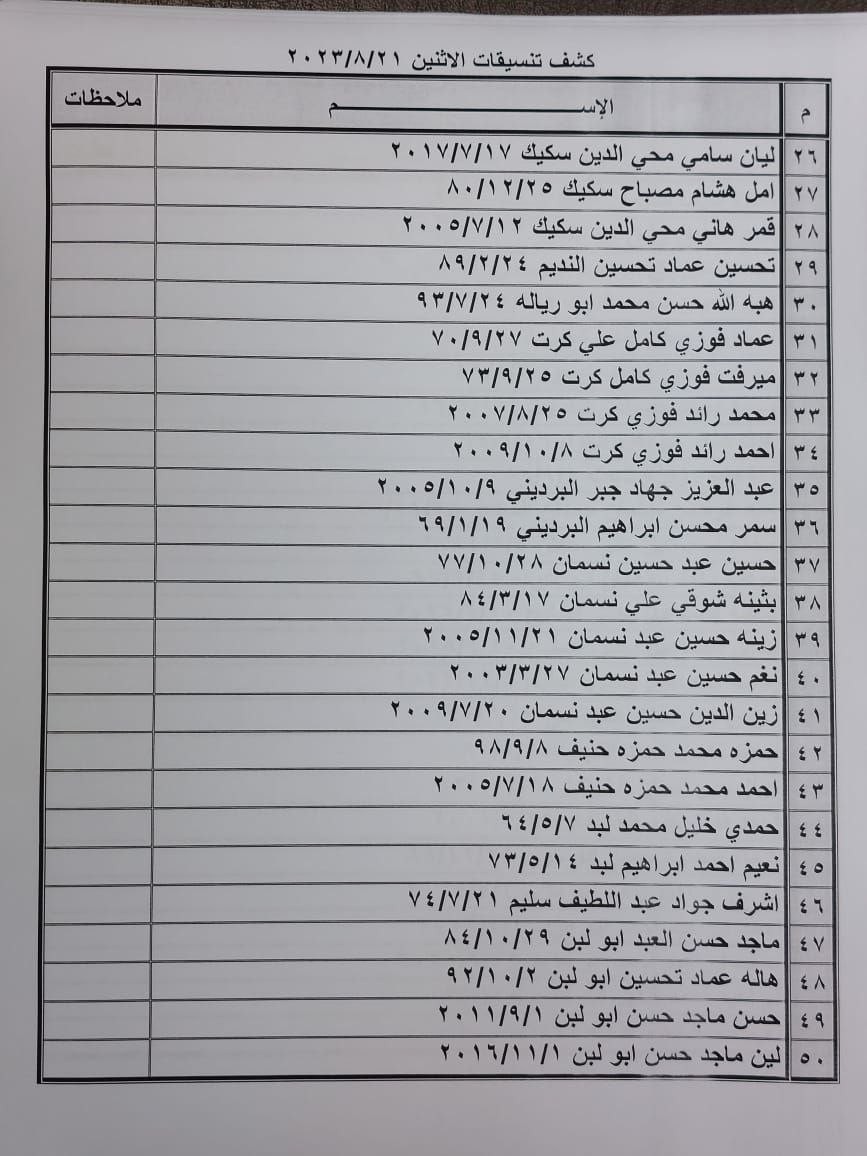 كشف تنسيقات الاثنين ٢٠٢٣/٨/٢١
م الإســـــم ملاحظات
٢٦ ليان سامي محي الدين سكيك ٢٠١٧/٧/١٧
٢٧ امل هشام مصباح سكيك ٨٠/١٢/٢٥
٢٨ قمر هاني محي الدين سكيك ٢٠٠٥/٧/١٢
٢٩ تحسين عماد تحسين النديم ٨٩/٢/٢٤
٣٠ هبه الله حسن محمد ابو رياله ٩٣/٧/٢٤
٣١ عماد فوزي كامل علي كرت ٧٠/٩/٢٧
٣٢ ميرفت فوزي كامل كرت ٧٣/٩/٢٥
٣٣ محمد رائد فوزي كرت ٢٠٠٧/٨/٢٥
٣٤ احمد رائد فوزي كرت ٢٠٠٩/١٠/٨
٣٥ عبد العزيز جهاد جبر البرديني ٢٠٠٥/١٠/٩
٣٦ سمر محسن ابراهيم البرديني ٦٩/١/١٩
٣٧ حسين عبد حسين نسمان ٧٧/١٠/٢٨
٣٨ بثينه شوقي علي نسمان ٨٤/٣/١٧
٣٩ زينه حسين عبد نسمان ٢٠٠٥/١١/٢١
٤٠ نغم حسين عبد نسمان ٢٠٠٣/٣/٢٧
٤١ زين الدين حسين عبد نسمان ٢٠٠٩/٧/٢٠
٤٢ حمزه محمد حمزه حنيف ٩٨/٩/٨
٤٣ احمد محمد حمزه حنيف ٢٠٠٥/٧/١٨
٤٤ حمدي خليل محمد لبد ٦٤/٥/٧
٤٥ نعيم احمد ابراهيم لبد ٧٣/٥/١٤
٤٦ اشرف جواد عبد اللطيف سليم ٧٤/٧/٢١
٤٧ ماجد حسن العبد ابو لبن ٨٤/١٠/٢٩
٤٨ هاله عماد تحسين ابو لبن ٩٢/١٠/٢
٤٩ حسن ماجد حسن ابو لبن ٢٠١١/٩/١
٥٠ لين ماجد حسن ابو لبن ٢٠١٦/١١/١